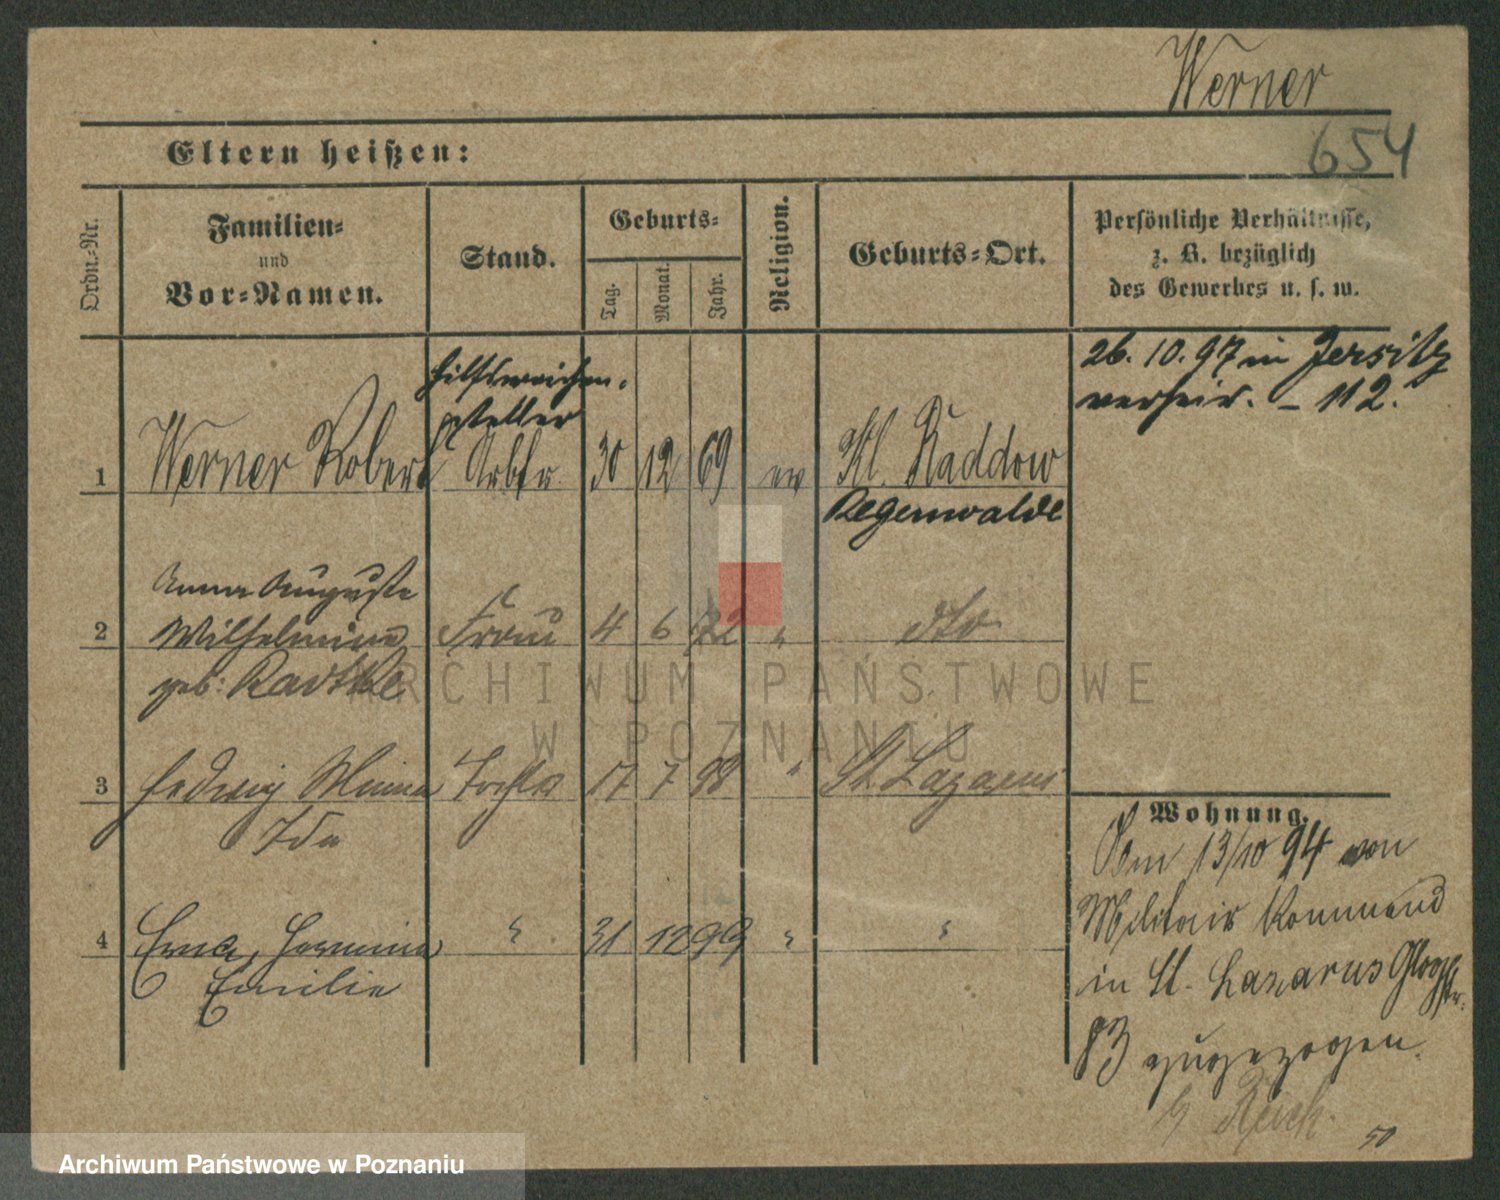 Werner
654
Eltern heißen:
Ordn.-Nr.
Familien-
und
Vor-Namen.
Stand.
Geburts-
Tag.
Monat.
Jahr.
Religion.
Geburts-Ort.
Persönliche Verhältnisse,
z. B. bezüglich
des Gewerbes u. s. w.
26. 10. 97 in Jersitz
verheir. – 112.
Hilfsweichen-
steller
1 Werner Robert Arbtr 30 12 69 ev Kl. Raddow
Regenwalde
Anna Auguste
2 Wilhelmine Frau 4 6 72 " dto
geb: Radtke
3 Hedwig Minna Tochter 17 7 98 " St. Lazarus
Ida
4 Erna, Hermine " 31 12 99 " "
Emilie
Wohnung.
Vom 13/10 94 von
Militair Kommand
in St. Lazarus Glog.str.
83 zugezogen.
50
ARCHIWUM PAŃSTWOWE
W POZNANIU
Archiwum Państwowe w Poznaniu